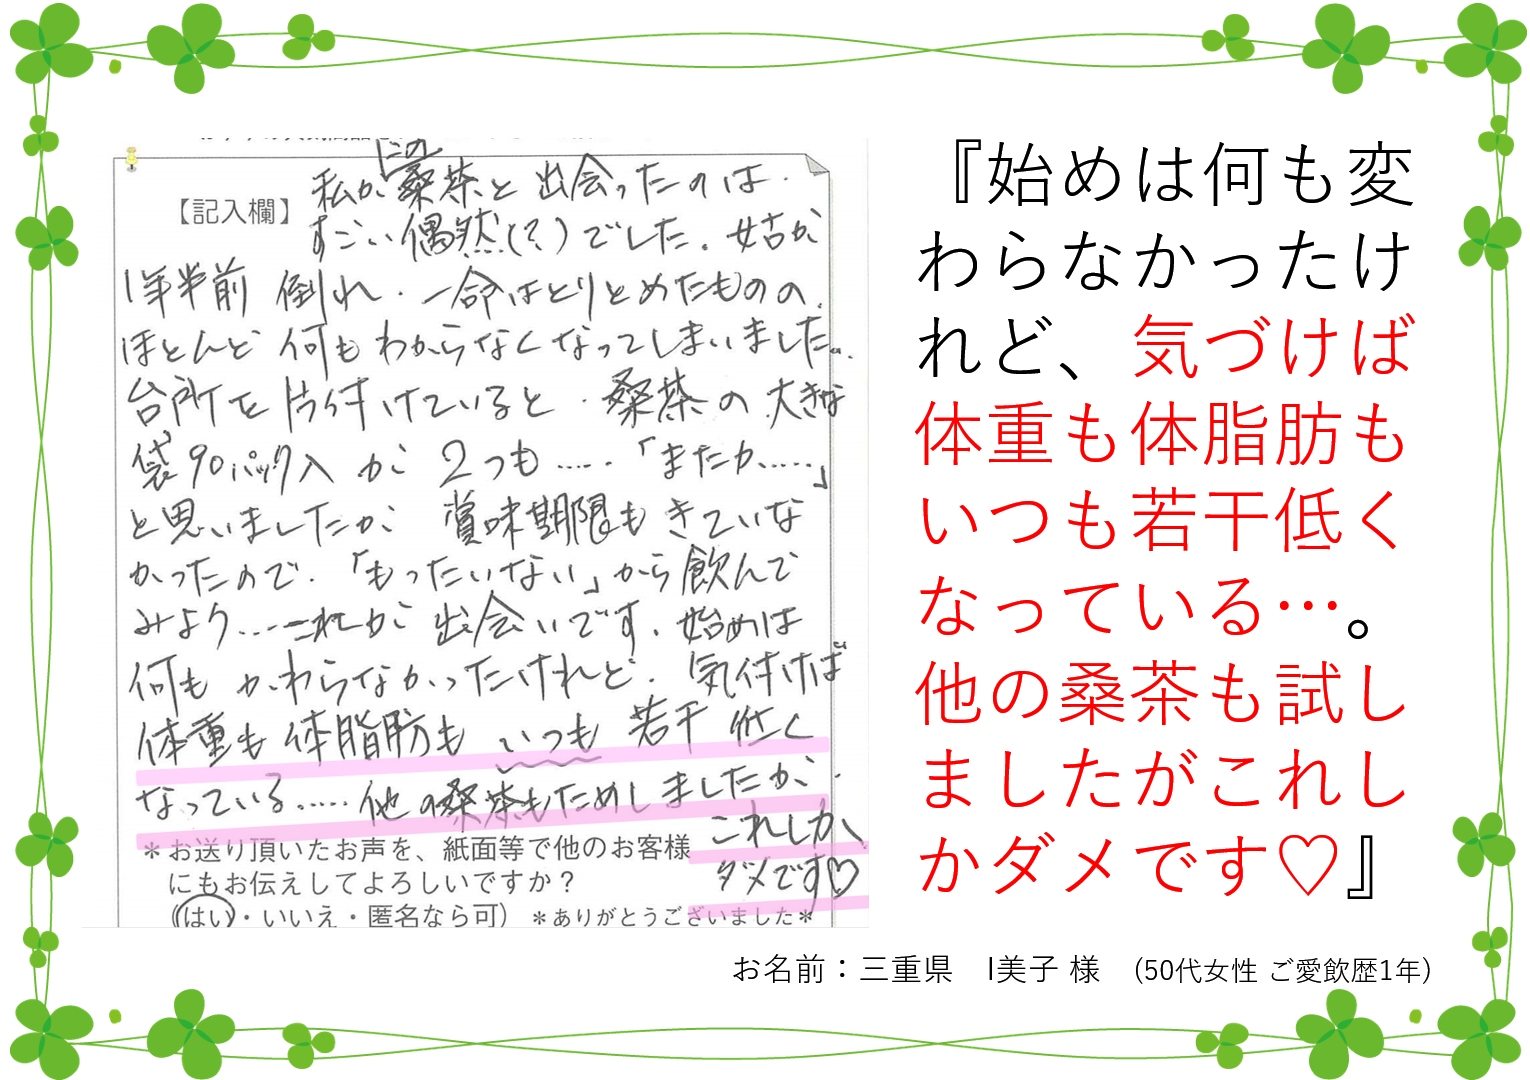 この
私が桑茶と出会ったのは.
【記入欄】
すごい偶然(?)でした。姑が
1年半前 倒れ.一命はとりとめたものの.
ほとんど何もわからなくなってしまいました…
台所を片付けていると.桑茶の大きな
袋90パック入が 2つも……「またか……」
と思いましたが 賞味期限もきていな
かったので.「もったいない」から飲んで
みよう…これが出会いです。始めは
何もかわらなかったけれど.気付けば
体重も体脂肪もいつも若干低く
なっている……他の桑茶もためしましたが.
これしか
ダメです♡
＊お送り頂いたお声を、紙面等で他のお客様
にもお伝えしてよろしいですか？
(はい・いいえ・匿名なら可) ＊ありがとうございました＊
『始めは何も変
わらなかったけ
れど、気づけば
体重も体脂肪も
いつも若干低く
なっている…。
他の桑茶も試し
ましたがこれし
かダメです♡』
お名前：三重県　I美子 様　(50代女性 ご愛飲歴1年)